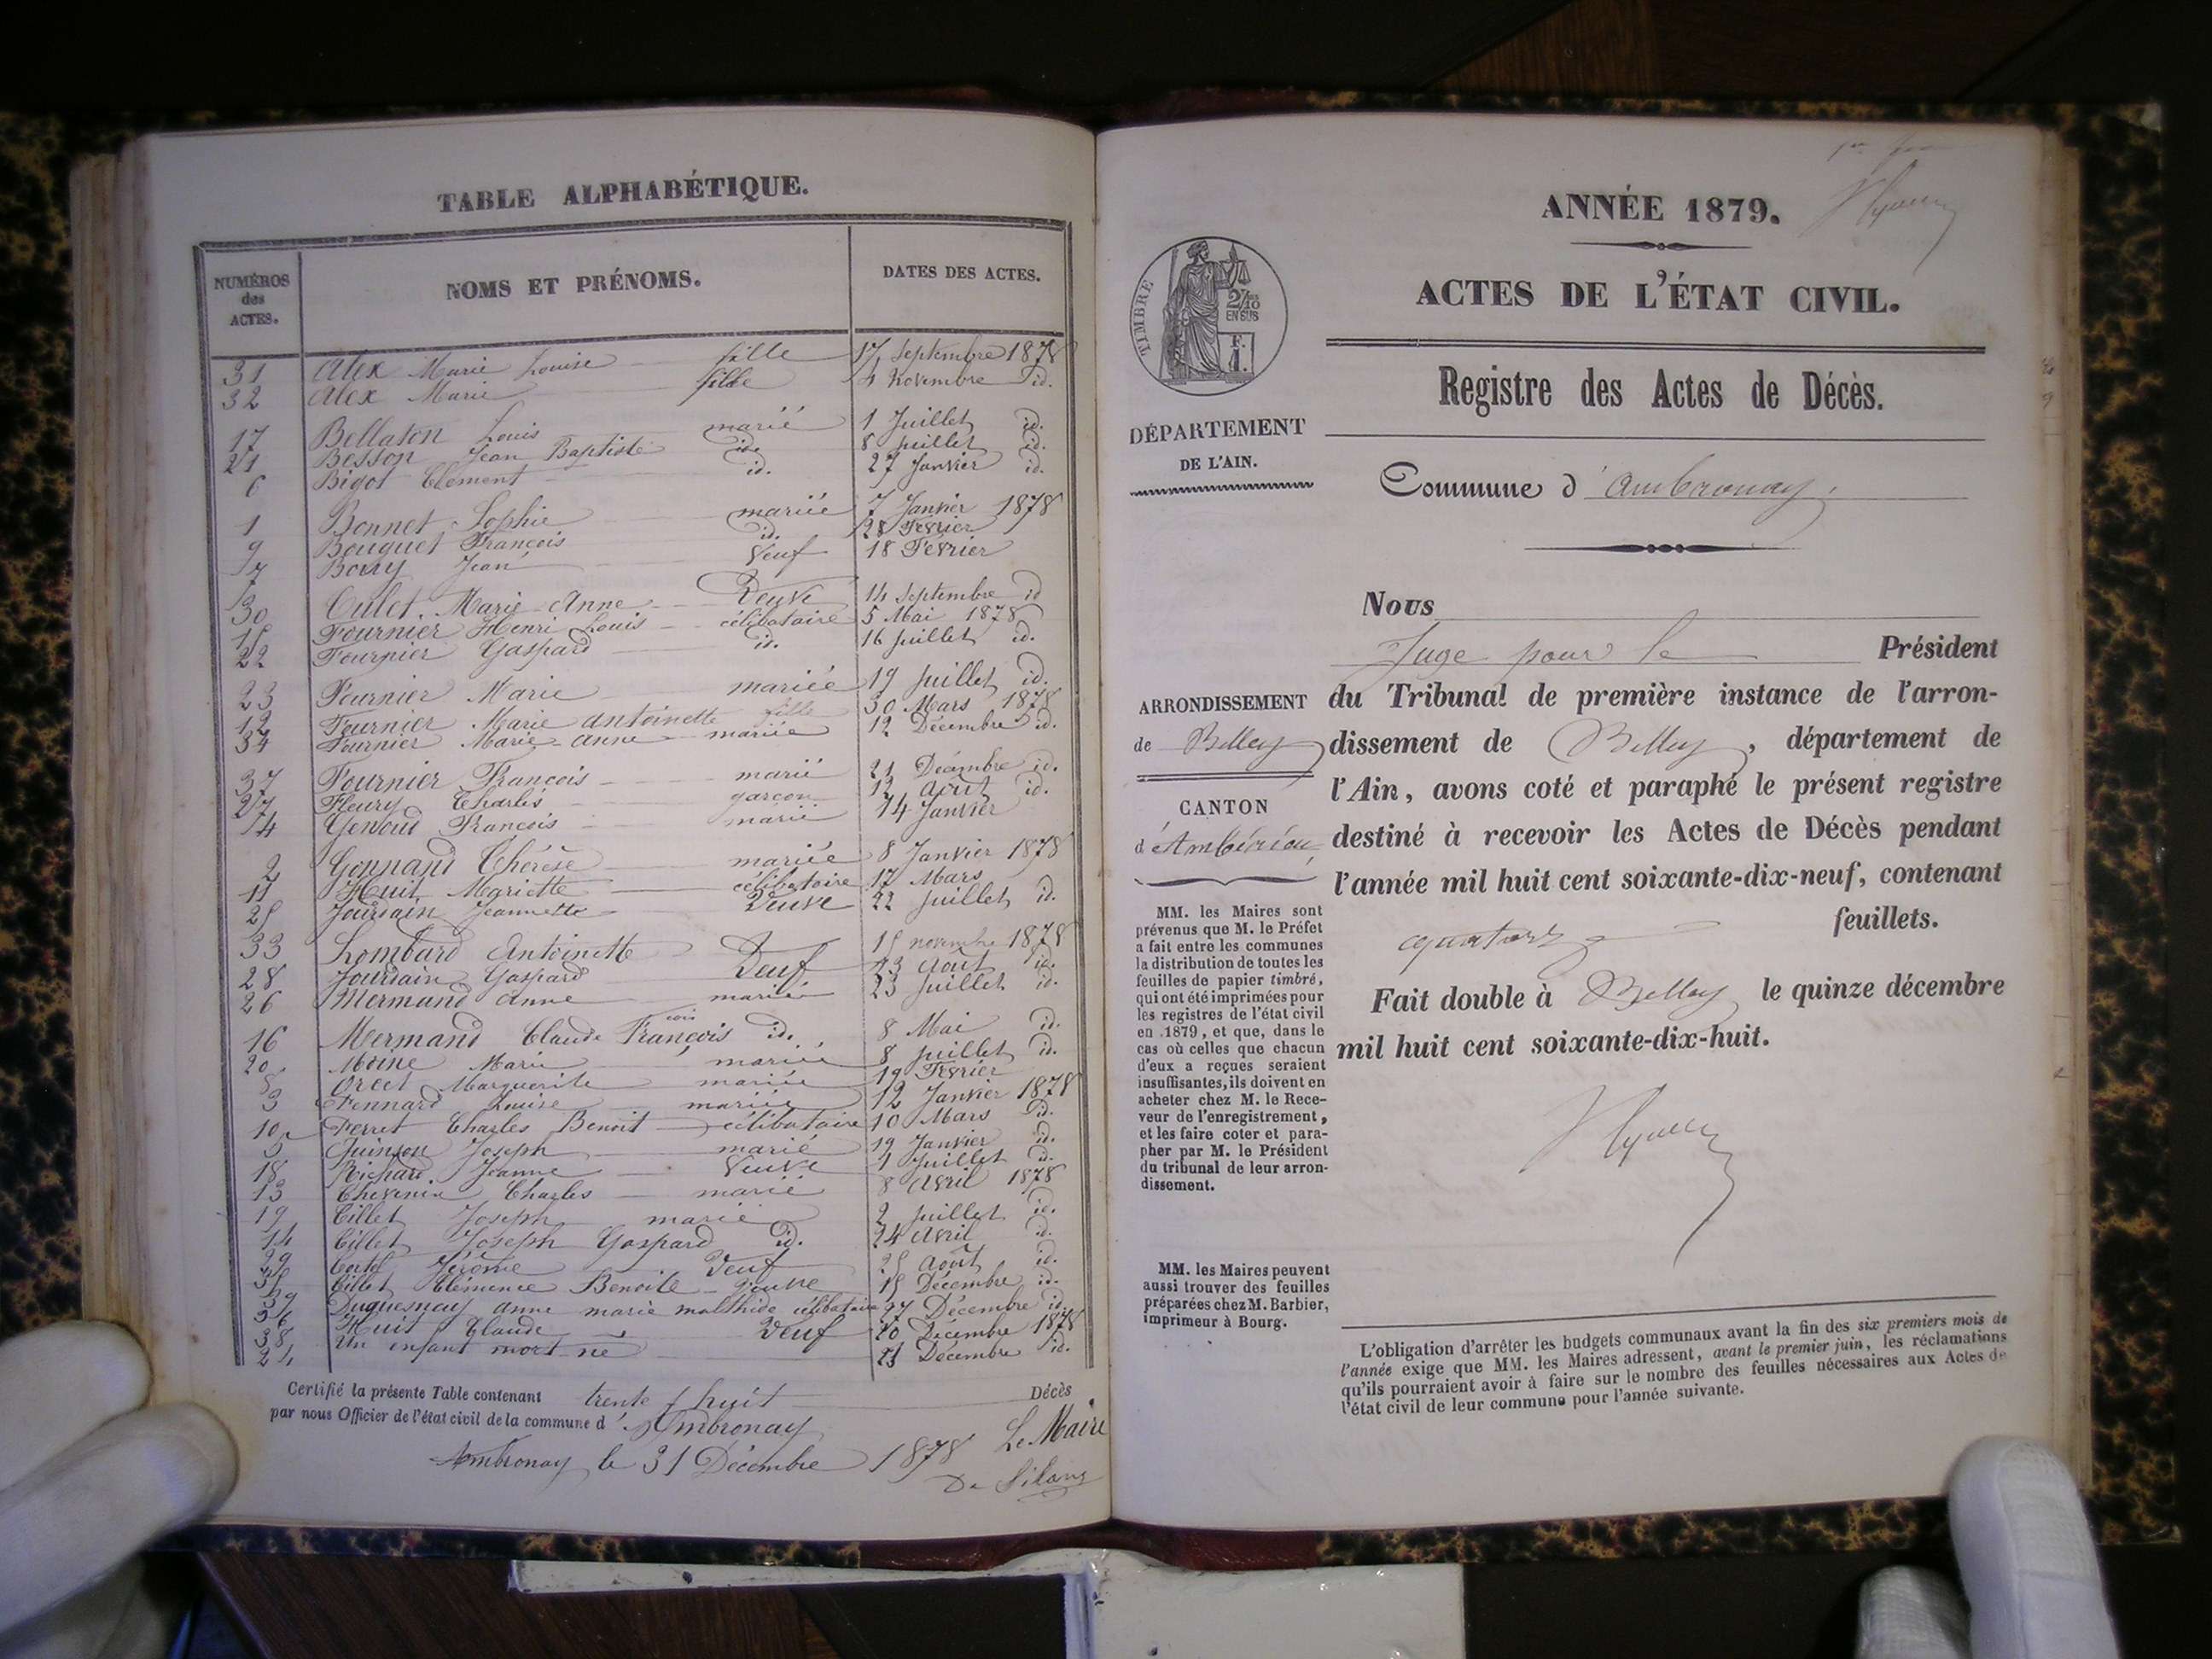 TABLE ALPHABÉTIQUE.
NUMÉROS des ACTES.
NOMS ET PRÉNOMS.
DATES DES ACTES.
31 Alex Marie Louise fille 17 Septembre 1878
32 Alex Marie fille 4 Novembre id.
17 Bellaton Louis marié 1 Juillet id.
21 Besson Jean Baptiste id. 8 Juillet id.
6 Bigot Clément id. 27 Janvier id.
1 Bonnet Sophie mariée 7 Janvier 1878
9 Bouquet François id. 28 Février
7 Borry Jean Veuf 18 Février
30 Culet Marie Anne Veuve 14 Septembre id
15 Fournier Henri Louis célibataire 5 Mai 1878
22 Fournier Gaspard id. 16 Juillet id.
23 Fournier Marie mariée 19 Juillet id.
12 Fournier Marie antoinette fille 30 Mars 1878
34 Fournier Marie-anne mariée 12 Décembre id.
37 Fournier François marié 21 Décembre id.
27 Fleury Charles garçon 12 Août id.
4 Genoud François marié 14 Janvier
2 Gonnand Thérèse mariée 8 Janvier 1878
11 Huit Mariette célibataire 17 Mars
25 Jourdain Jeannette Veuve 22 Juillet id.
33 Lombard Antoinette 15 novembre 1878
28 Jourdain Gaspard Veuf 13 Août id.
26 Mermand Anne mariée 23 Juillet id.
16 Mermand Claude François id. 8 Mai id.
20 Moine Marie mariée 8 Juillet id.
8 Orcet Marguerite mariée 19 Février
3 Pennard Louise mariée 12 Janvier 1878
10 Perret Charles Benoit célibataire 10 Mars id.
5 Guinson Joseph marié 19 Janvier id.
18 Richard Jeanne Veuve 1 Juillet id.
13 Thevenin Charles marié 8 Avril 1878
19 Tillet Joseph marié 2 Juillet id.
14 Tillet Joseph Gaspard id. 24 Avril id.
29 Jérôme Veuf 25 Août id.
35 Tillet Clémence Benoite Veuve 15 Décembre id.
Duquesnay anne marie malthide célibataire 27 Décembre id.
36 Huit Claude Veuf 20 Décembre 1878
Un enfant mort-né Décembre id.
Certifié la présente Table contenant trente huit Décès
par nous Officier de l'état civil de la commune d'Ambronay
Ambronay le 31 Décembre 1878 Le Maire
ANNÉE 1879.
ACTES DE L'ÉTAT CIVIL.
TIMBRE
2/10
EN SUS
F.
1.
Registre des Actes de Décès.
DÉPARTEMENT
DE L'AIN.
Commune d'Ambronay.
Nous
Juge pour le Président
ARRONDISSEMENT
de Belley
CANTON
d'Ambérieu
du Tribunal de première instance de l'arron-
dissement de Belley, département de
l'Ain, avons coté et paraphé le présent registre
destiné à recevoir les Actes de Décès pendant
l'année mil huit cent soixante-dix-neuf, contenant
quatorze feuillets.
Fait double à Belley le quinze décembre
mil huit cent soixante-dix-huit.
MM. les Maires sont
prévenus que M. le Préfet
a fait entre les communes
la distribution de toutes les
feuilles de papier timbré,
qui ont été imprimées pour
les registres de l'état civil
en 1879, et que, dans le
cas où celles que chacun
d'eux a reçues seraient
insuffisantes, ils doivent en
acheter chez M. le Rece-
veur de l'enregistrement,
et les faire coter et para-
pher par M. le Président
du tribunal de leur arron-
dissement.
MM. les Maires peuvent
aussi trouver des feuilles
préparées chez M. Barbier,
imprimeur à Bourg.
L'obligation d'arrêter les budgets communaux avant la fin des six premiers mois de
l'année exige que MM. les Maires adressent, avant le premier juin, les réclamations
qu'ils pourraient avoir à faire sur le nombre des feuilles nécessaires aux Actes de
l'état civil de leur commune pour l'année suivante.